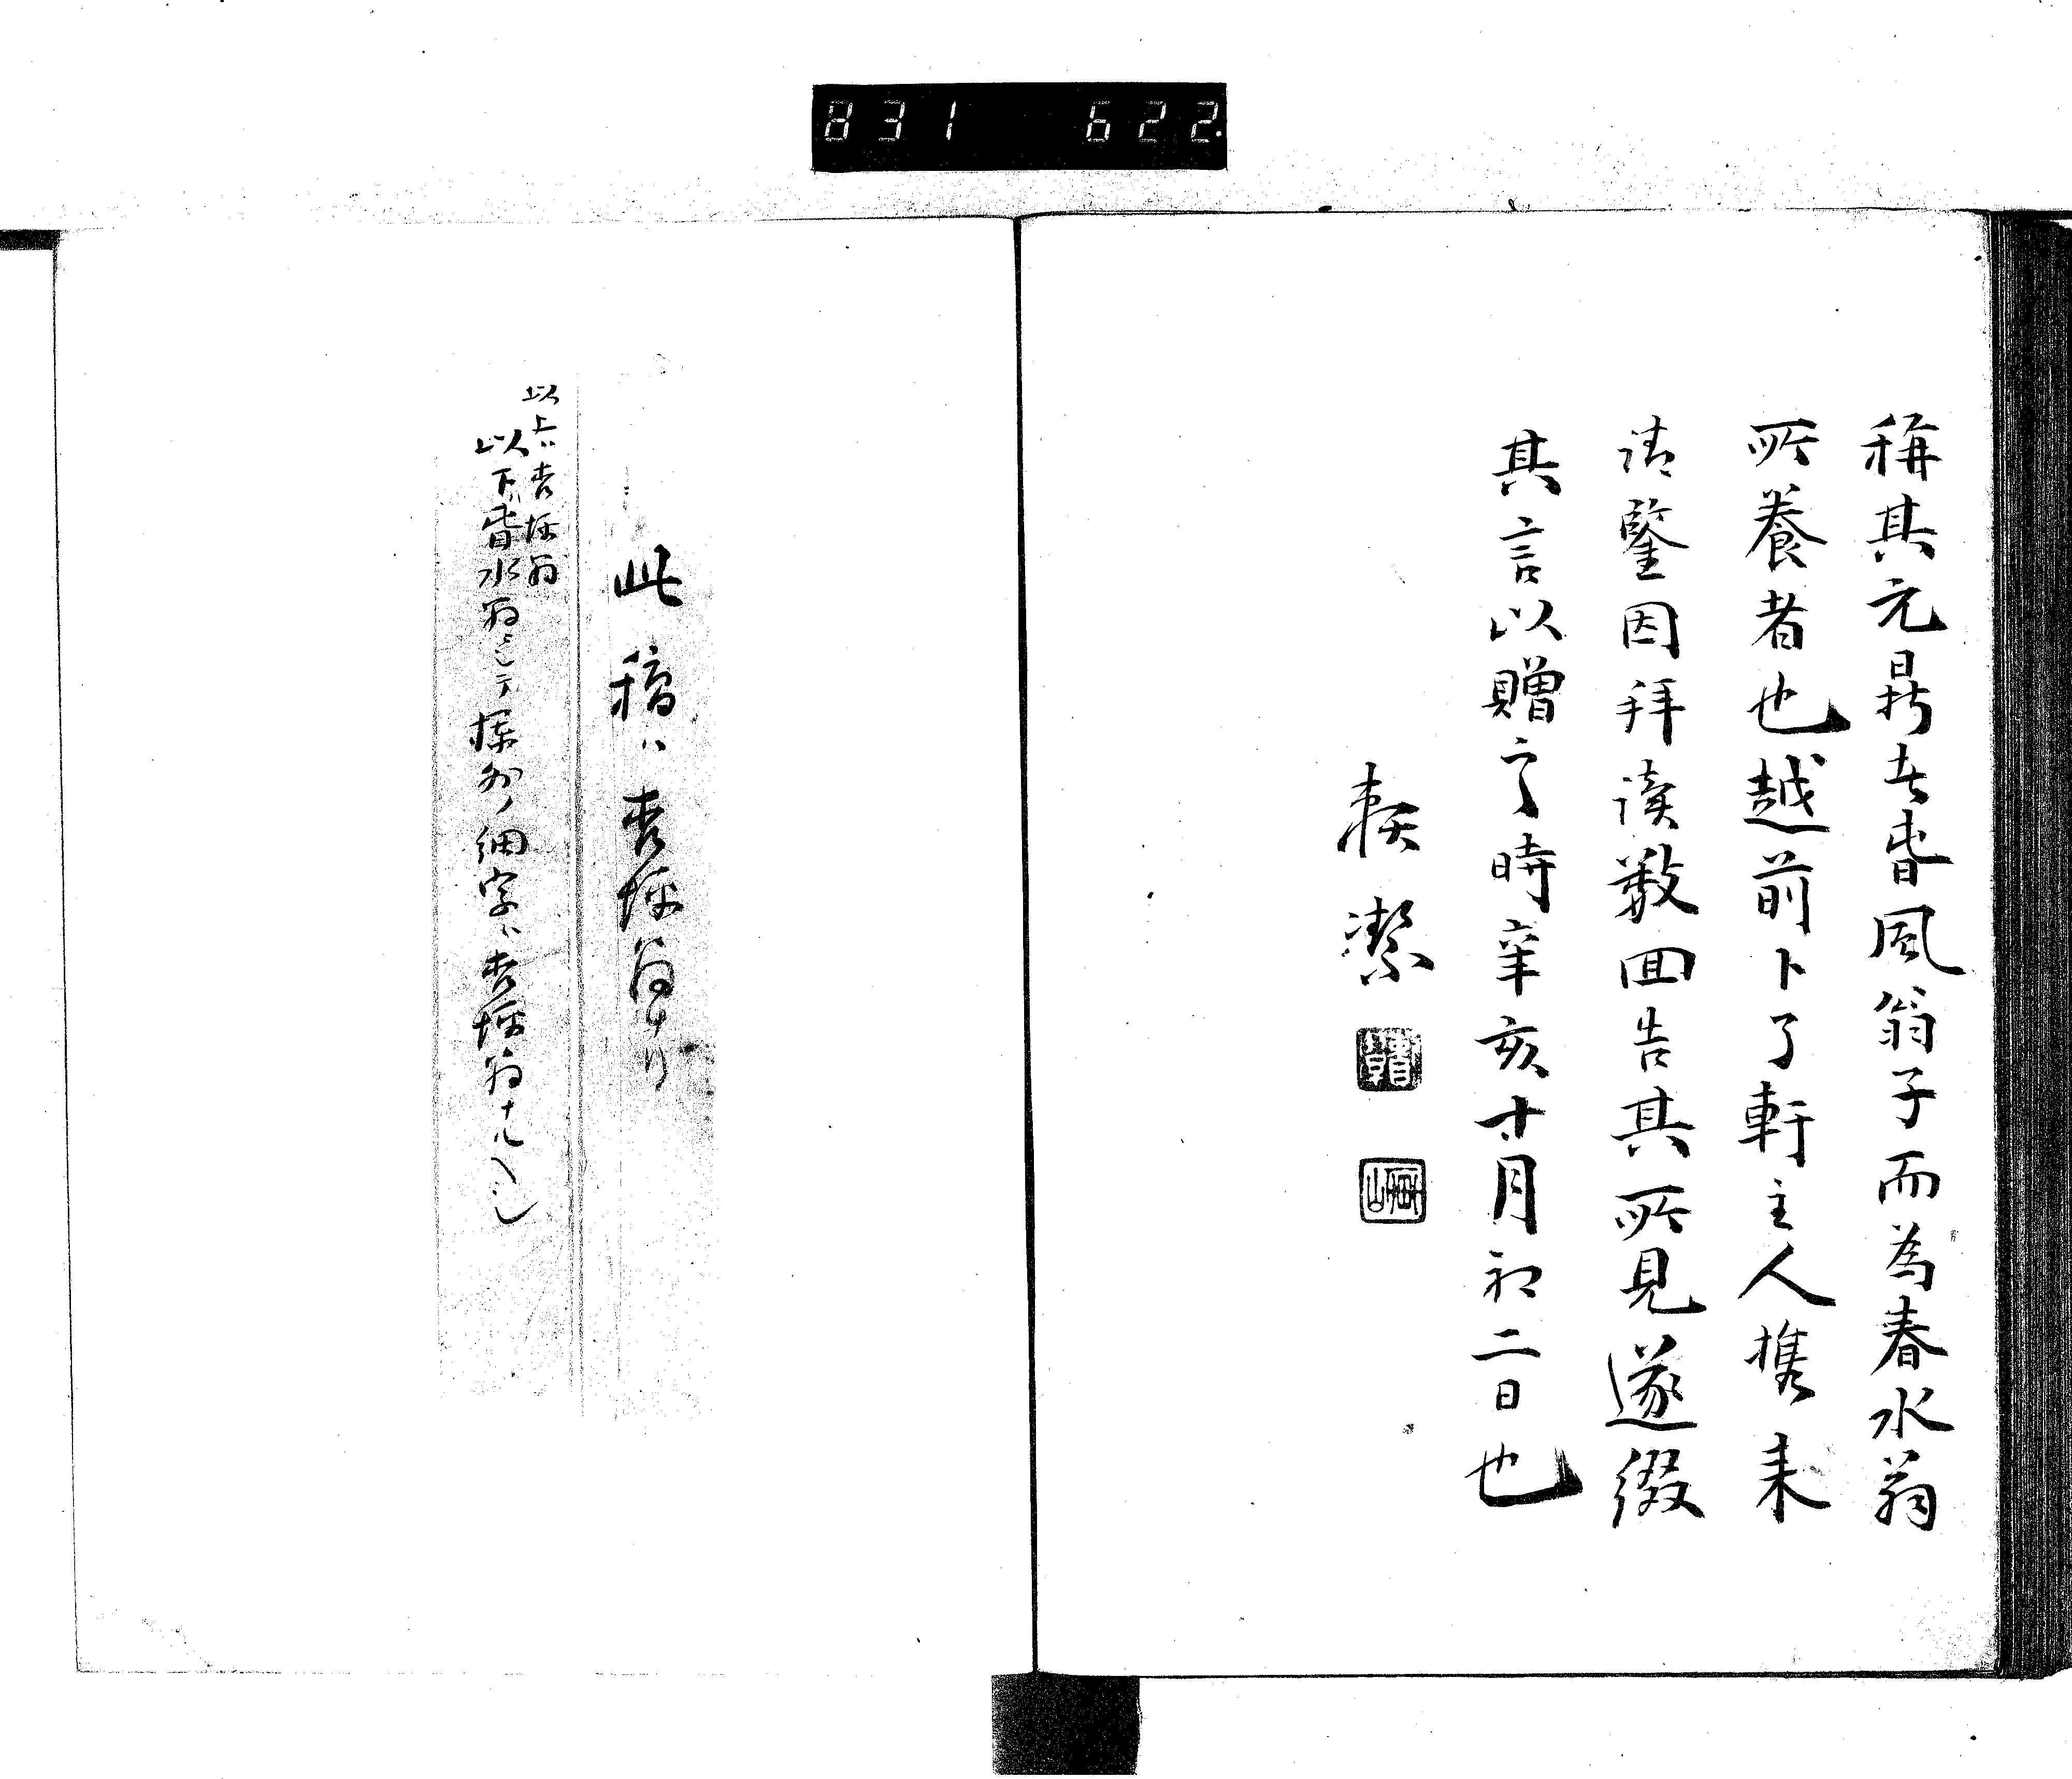 831 622
稱其元鼎者春風翁子而為春水翁
所養者也越前卜了軒主人携来
請鑒因拜読数回告其所見遂綴
其言以贈之時辛亥十月初二日也
頼潔
此稿ハ杏坪翁ナリ
以上ハ杏坪翁
以下ハ春水翁ニシテ 欄外ノ細字ハ杏坪翁ナルベシ